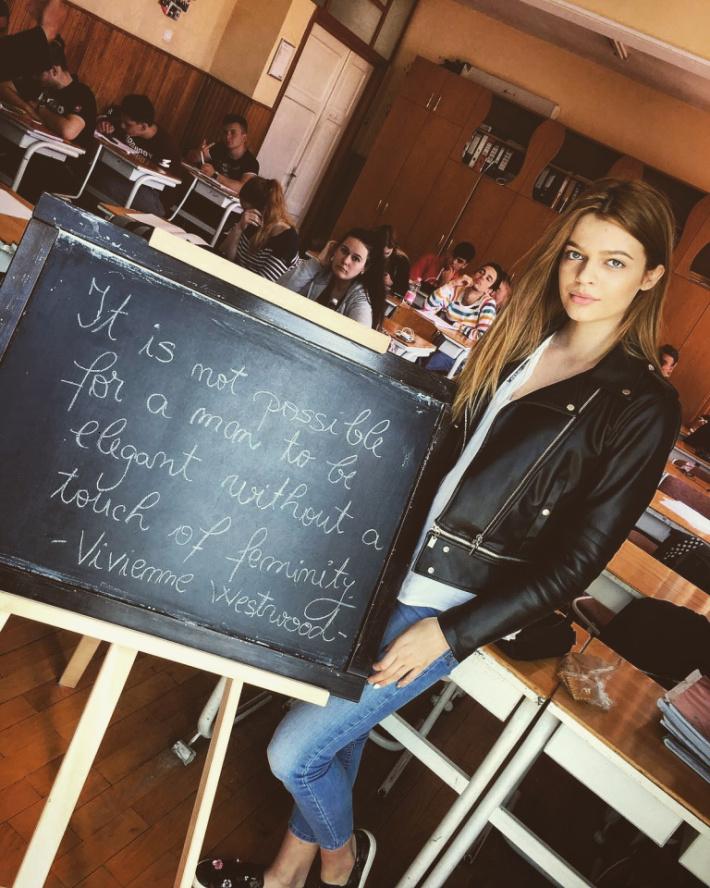 It is not possible
for a man to be
elegant without a
touch of feminity.
-Vivienne Westwood-